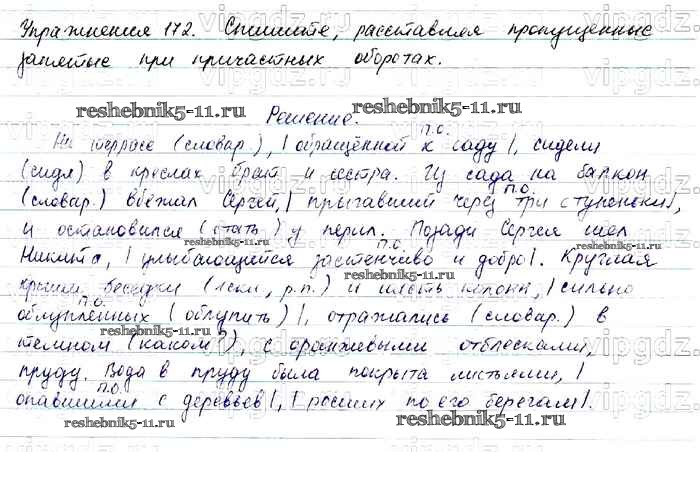 Упражнения 172. Спишите, расставляя пропущенные
запятые при причастных оборотах.
reshebnik5-11.ru reshebnik5-11.ru
Решение.
п.о.
На террасе (словар.), | обращённой к саду |, сидели
(сидя) в креслах брат и сестра. Из сада на балкон
п.о.
(словар.) вбежал Сергей, | прыгавший через три ступеньки |,
и остановился (стать) у перил. Позади Сергея шёл
reshebnik5-11.ru п.о. reshebnik5-11.ru
Никита, | улыбающийся застенчиво и добро |. Круглая
reshebnik5-11.ru
крыши беседки (1скл., р.п.) и шесть колонн, | сильно
п.о.
облупленных (облупить) |, отражались (словар.) в
reshebnik5-11.ru
тёмном (каком?), с оранжевыми отблесками,
пруду. Вода в пруду была покрыта листьями, |
п.о.
опавшими с деревьев |, | росших по его берегам |.
reshebnik5-11.ru reshebnik5-11.ru